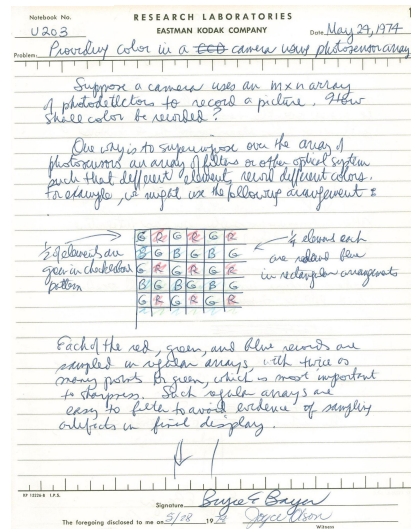 Notebook No. RESEARCH LABORATORIES
U203 EASTMAN KODAK COMPANY Date May 29, 1974
Problem: Providing color in a CCD camera using photosensor array
Suppose a camera uses an m x n array
of photodetectors to record a picture. How
shall color be recorded?
One way is to superimpose over the array of
photosensors an array of filters or other optical system
such that different elements record different colors.
For example, we might use the following arrangement:
1/2 of elements are
green in checkerboard
pattern
G R G R G R
B G B G B G
G R G R G R
B G B G B G
G R G R G R
1/4 elements each
are red and blue
in rectangular arrangements
Each of the red, green, and blue records are
sampled in regular arrays, with twice as
many points for green, which is most important
to sharpness. Such regular arrays are
easy to filter to avoid evidence of sampling
artifacts in final display.
RF 15236-B I.P.S.
Signature Bryce E Bayer
The foregoing disclosed to me on 5/28 19 Joyce Olson
Witness